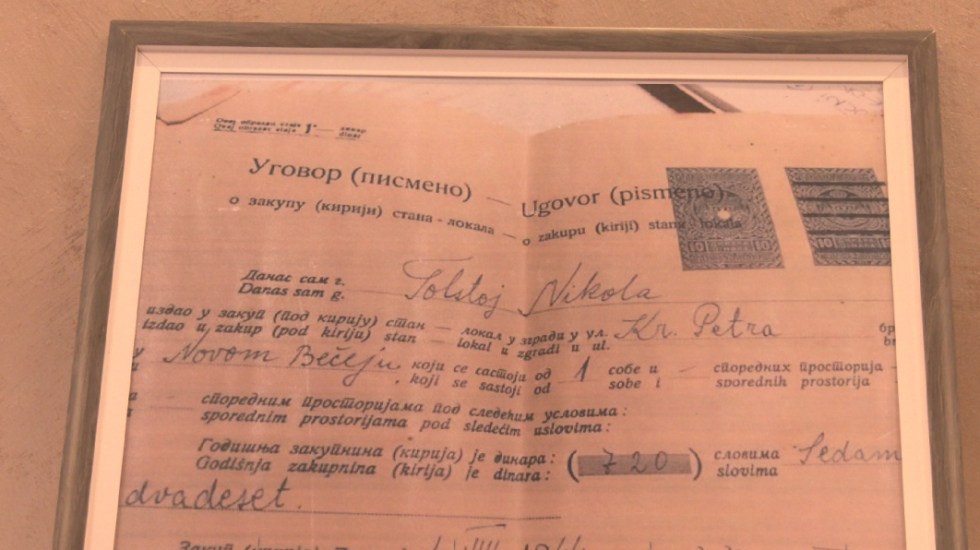 Овај образац стаје 1·— динар
Ovaj obrazac staje dinar
Уговор (писмено) — Ugovor (pismeno)
о закупу (кирији) стана - локала — o zakupu (kiriji) stana lokala
10 10 10
Данас сам г. Tolstoj Nikola
Danas sam g.
издао у закуп (под кирију) стан — локал у згради у ул. Kr. Petra
izdao u zakup (pod kiriju) stan — lokal u zgradi u ul.
у Novom Bečeju који се састоји од 1 собе и — споредних просторија
, koji se sastoji od sobe i sporednih prostorija
споредним просторијама под следећим условима :
sporednim prostorijama pod sledećim uslovima :
Годишња закупнина (кирија) је динара : (720) словима Sedam
Godišnja zakupnina (kirija) je dinara : slovima
dvadeset.